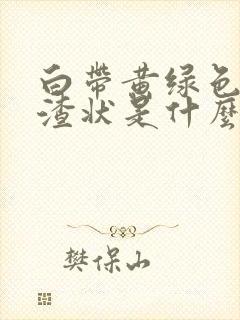 白帶黃绿色
渣状是什麼
樊保山